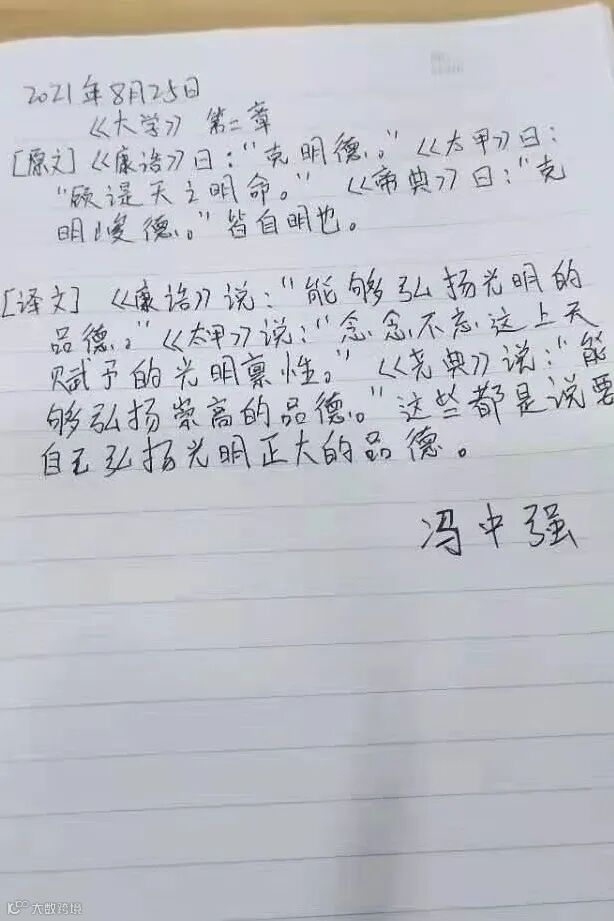 2021年8月25日
《大学》 第二章
[原文]《康诰》曰：“克明德。”《太甲》曰：
“顾諟天之明命。” 《帝典》曰：“克
明峻德。”皆自明也。
[译文]《康诰》说：“能够弘扬光明的
品德。”《太甲》说：“念念不忘这上天
赋予的光明禀性。”《尧典》说：“能
够弘扬崇高的品德。”这些都是说要
自己弘扬光明正大的品德。
冯中强
大数跨境